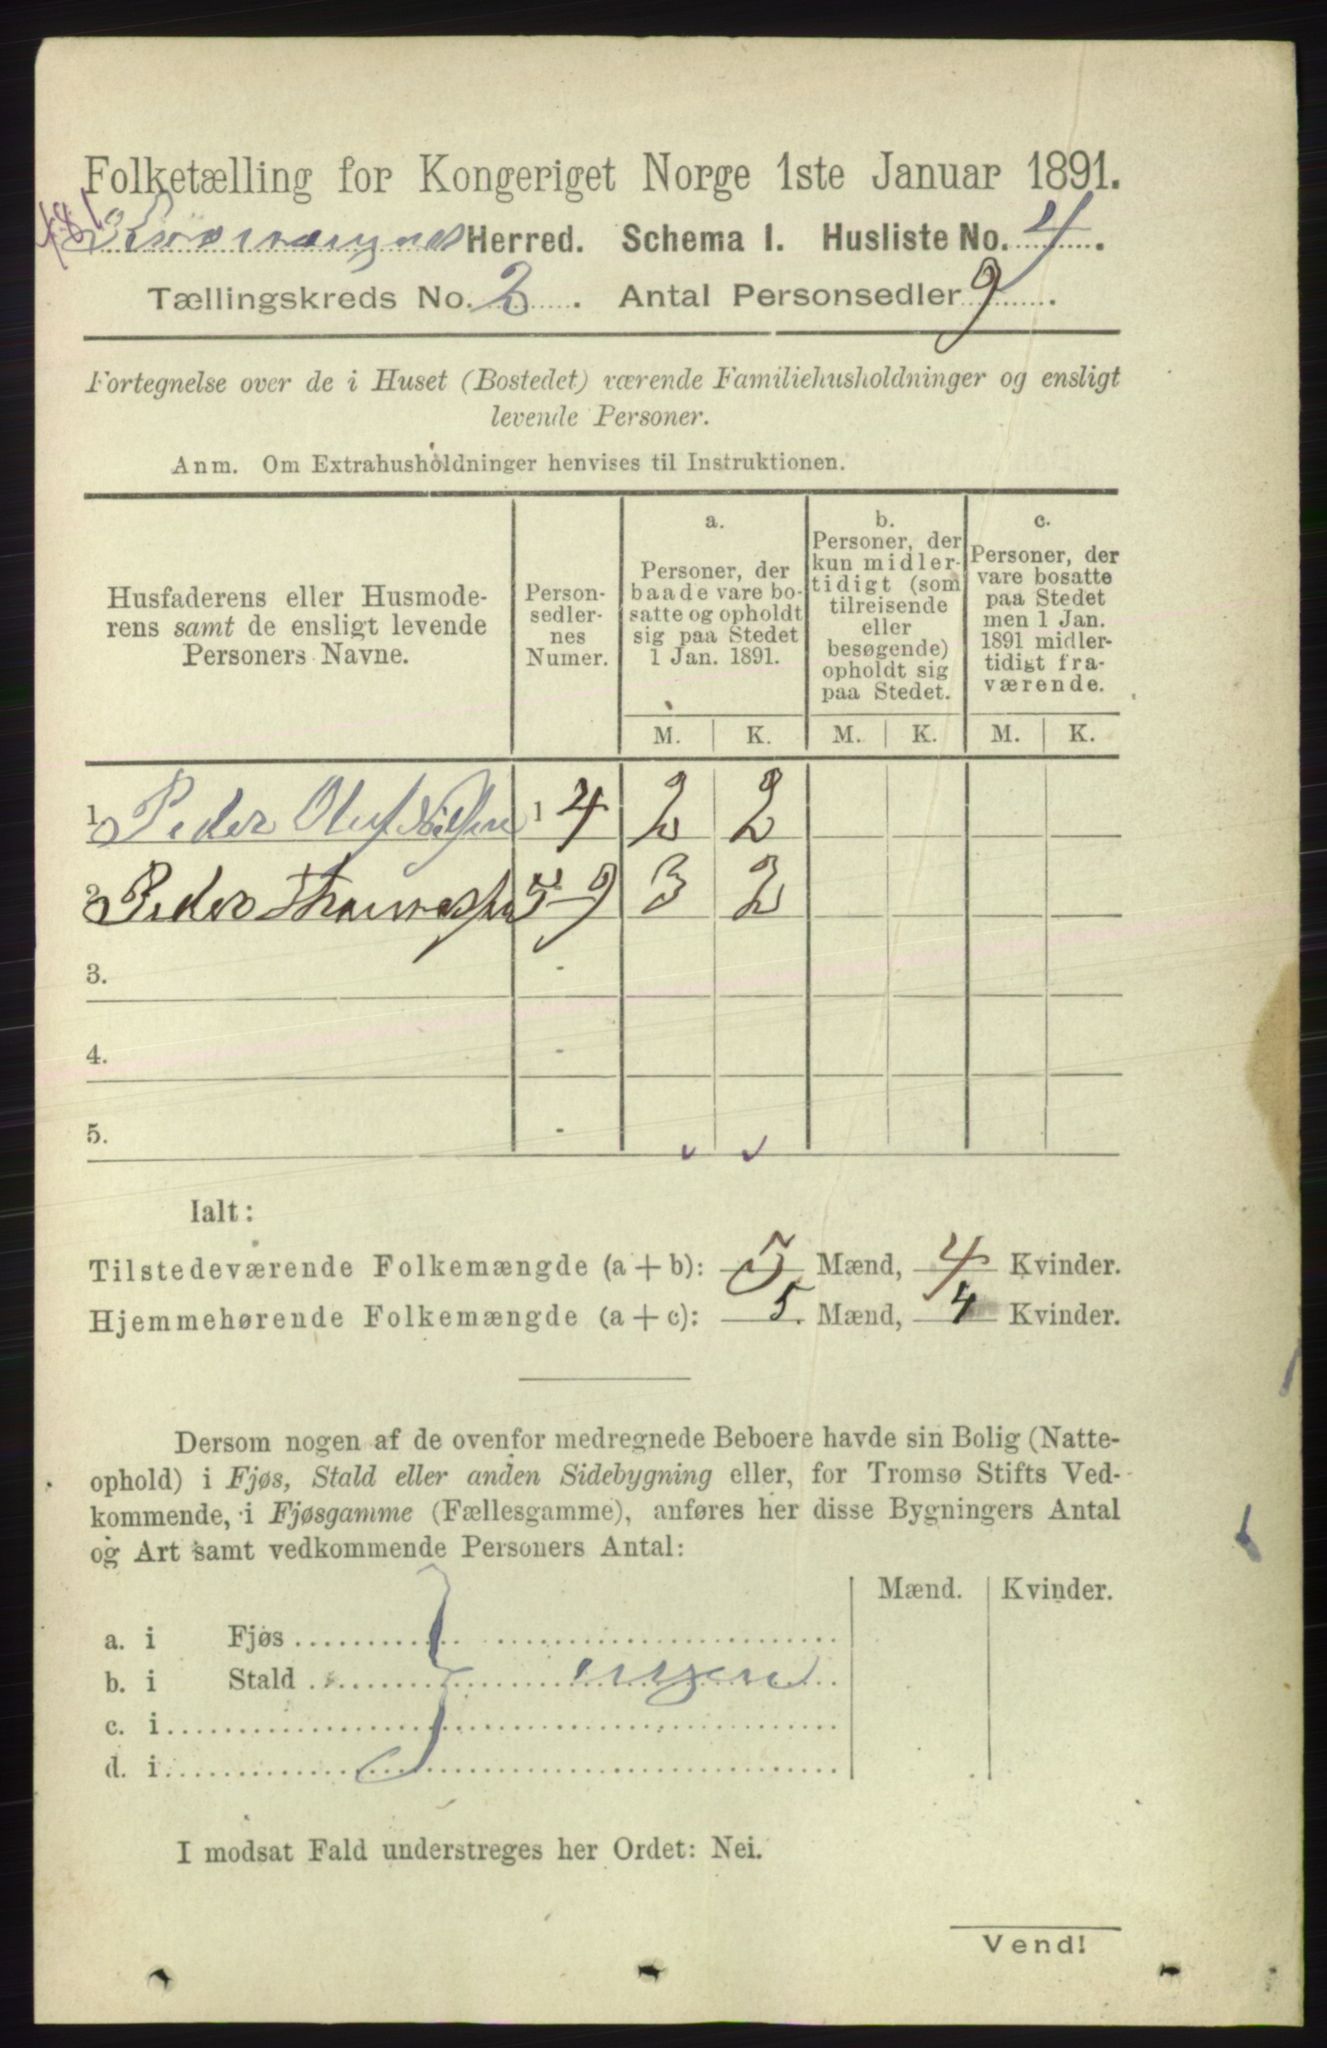 Folketælling for Kongeriget Norge 1ste Januar 1891.
Herred. Schema I. Husliste No. 4.
Tællingskreds No. 2. Antal Personsedler 9.
Fortegnelse over de i Huset (Bostedet) værende Familiehusholdninger og ensligt
levende Personer.
Anm. Om Extrahusholdninger henvises til Instruktionen.
Husfaderens eller Husmode-
rens samt de ensligt levende
Personers Navne.
Person-
sedler-
nes
Numer.
a.
Personer, der
baade vare bo-
satte og opholdt
sig paa Stedet
1 Jan. 1891.
M. K.
b.
Personer, der
kun midler-
tidigt (som
tilreisende
eller
besøgende)
opholdt sig
paa Stedet.
M. K.
c.
Personer, der
vare bosatte
paa Stedet
men 1 Jan.
1891 midler-
tidigt fra-
værende.
M. K.
1. Peder Oluf Nilsen 1 - 4 2 2
2. Peder Thomassen 5-9 3 2
3. -
4. -
5. -
Ialt:
Tilstedeværende Folkemængde (a+b): 5 Mænd, 4 Kvinder.
Hjemmehørende Folkemængde (a+c): 5. Mænd, 4 Kvinder.
Dersom nogen af de ovenfor medregnede Beboere havde sin Bolig (Natte-
ophold) i Fjøs, Stald eller anden Sidebygning eller, for Tromsø Stifts Ved-
kommende, i Fjøsgamme (Fællesgamme), anføres her disse Bygningers Antal
og Art samt vedkommende Personers Antal:
Mænd. Kvinder.
a. i Fjøs
b. i Stald ingen
c. i
d. i
I modsat Fald understreges her Ordet: Nei.
Vend!